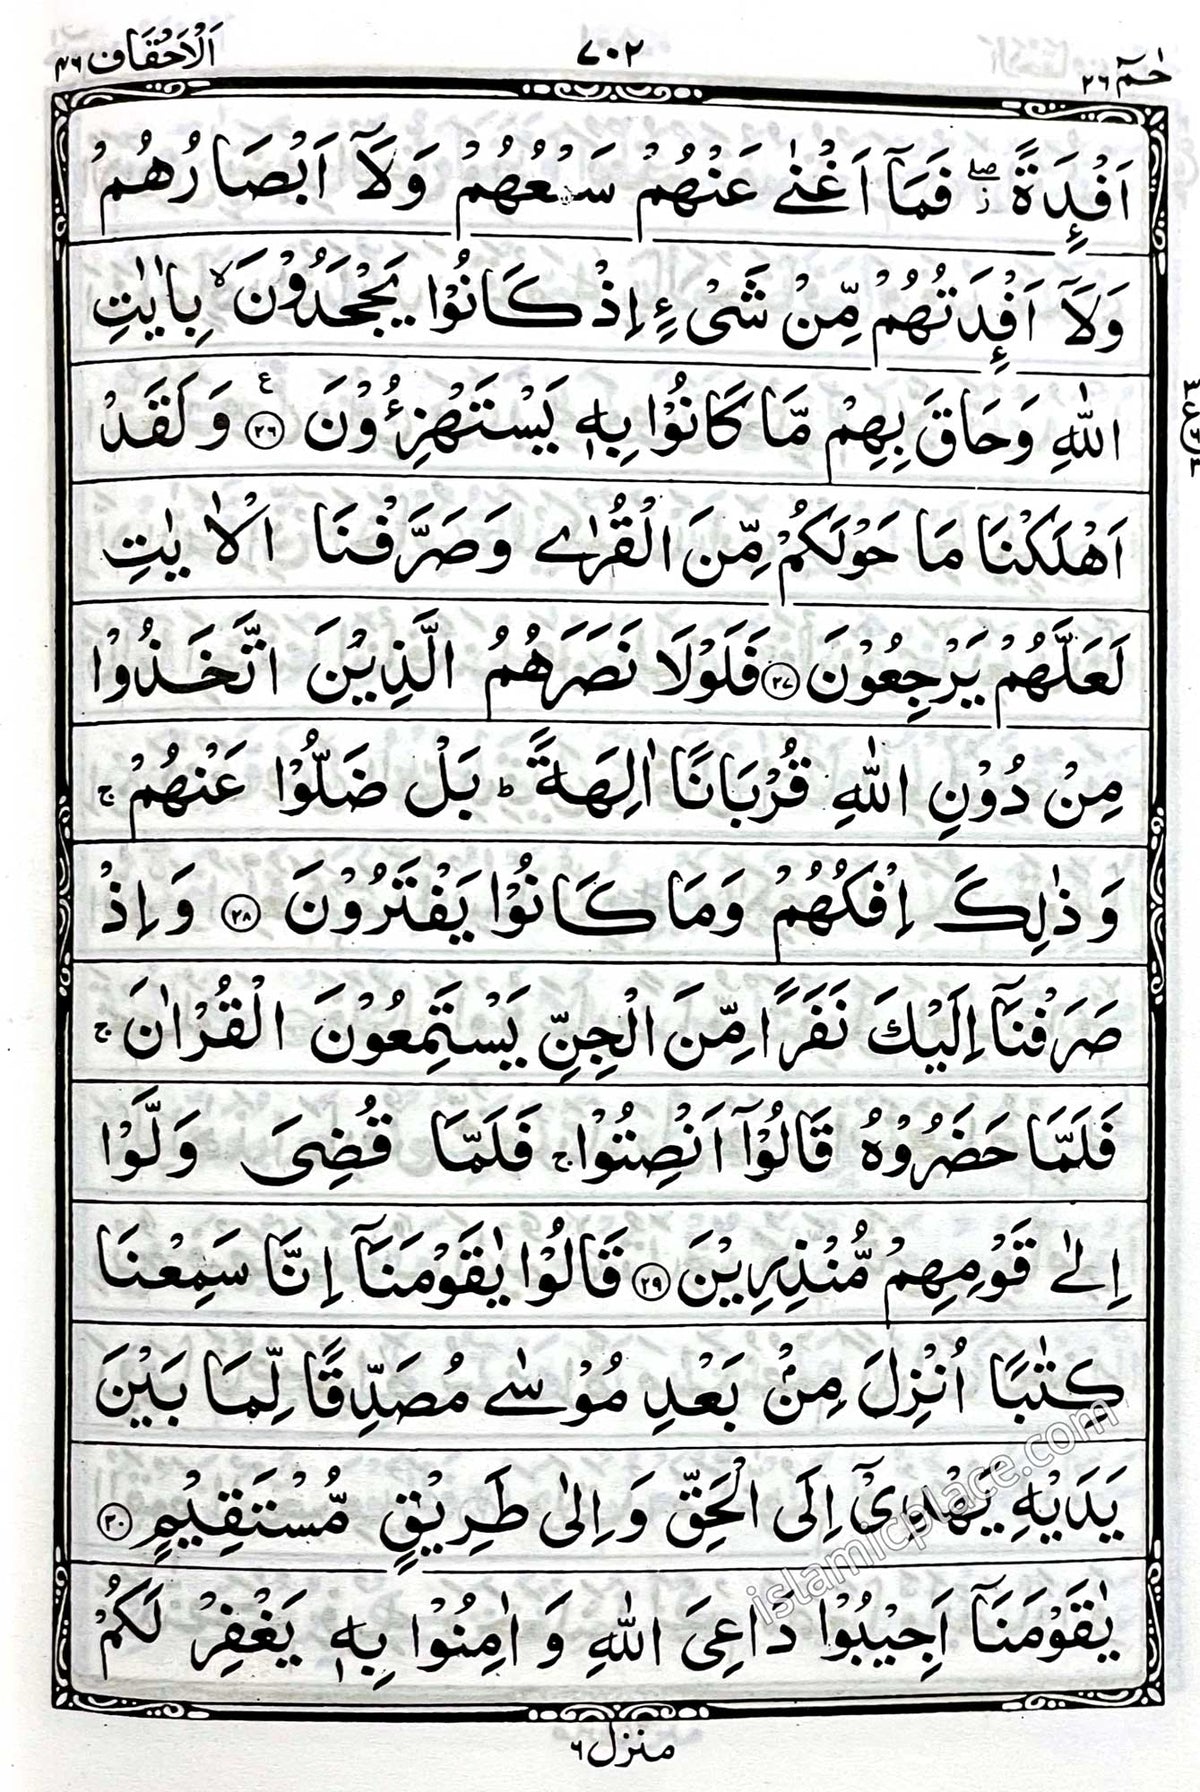 حٰمٓ ٢٦ ٧٠٢ اَلْاَحْقَاف ٤٦
اَفْـِٕدَةً ۖ فَمَاۤ اَغْنٰى عَنْهُمْ سَمْعُهُمْ وَلَاۤ اَبْصَارُهُمْ
وَلَاۤ اَفْـِٕدَتُهُمْ مِّنْ شَیْءٍ اِذْ كَانُوْا یَجْحَدُوْنَ ۙ بِاٰیٰتِ
اللّٰهِ وَحَاقَ بِهِمْ مَّا كَانُوْا بِهٖ یَسْتَهْزِءُوْنَ ۧ ﴿٢٦﴾ وَلَقَدْ
اَهْلَكْنَا مَا حَوْلَكُمْ مِّنَ الْقُرٰى وَصَرَّفْنَا الْاٰیٰتِ
لَعَلَّهُمْ یَرْجِعُوْنَ ﴿٢٧﴾ فَلَوْلَا نَصَرَهُمُ الَّذِیْنَ اتَّخَذُوْا
مِنْ دُوْنِ اللّٰهِ قُرْبَانًا اٰلِهَةً ؕ بَلْ ضَلُّوْا عَنْهُمْ ۚ
وَذٰلِكَ اِفْكُهُمْ وَمَا كَانُوْا یَفْتَرُوْنَ ﴿٢٨﴾ وَاِذْ
صَرَفْنَاۤ اِلَیْكَ نَفَرًا مِّنَ الْجِنِّ یَسْتَمِعُوْنَ الْقُرْاٰنَ ۚ
فَلَمَّا حَضَرُوْهُ قَالُوْۤا اَنْصِتُوْا ۚ فَلَمَّا قُضِیَ وَلَّوْا
اِلٰى قَوْمِهِمْ مُّنْذِرِیْنَ ﴿٢٩﴾ قَالُوْا یٰقَوْمَنَاۤ اِنَّا سَمِعْنَا
كِتٰبًا اُنْزِلَ مِنْۢ بَعْدِ مُوْسٰى مُصَدِّقًا لِّمَا بَیْنَ
یَدَیْهِ یَهْدِیْۤ اِلَى الْحَقِّ وَاِلٰى طَرِیْقٍ مُّسْتَقِیْمٍ ﴿٣٠﴾
یٰقَوْمَنَاۤ اَجِیْبُوْا دَاعِیَ اللّٰهِ وَاٰمِنُوْا بِهٖ یَغْفِرْ لَكُمْ
منزل ٦
islamicplace.com